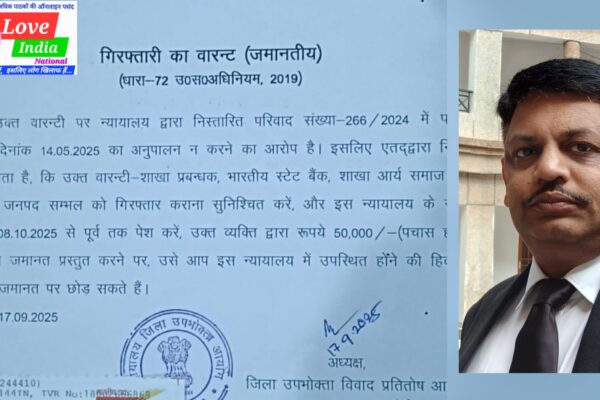 धिक पाठकों की ऑनलाइन पसंद
Love
India
National
इसलिए लोग खिलाफ हैं...
गिरफ्तारी का वारन्ट (जमानतीय)
(धारा-72 उ0स0अधिनियम, 2019)
उक्त वारन्टी पर न्यायालय द्वारा निस्तारित परिवाद संख्या-266/2024 में प
दिनांक 14.05.2025 का अनुपालन न करने का आरोप है। इसलिए एतद्द्वारा नि
ता है, कि उक्त वारन्टी-शाखा प्रबन्धक, भारतीय स्टेट बैंक, शाखा आर्य समाज
जनपद सम्भल को गिरफ्तार कराना सुनिश्चित करें, और इस न्यायालय के
08.10.2025 से पूर्व तक पेश करें, उक्त व्यक्ति द्वारा रूपये 50,000/-(पचास ह
जमानत प्रस्तुत करने पर, उसे आप इस न्यायालय में उपस्थित होंने की हि
जमानत पर छोड़ सकते हैं।
17.09.2025
17.9.2025
अध्यक्ष,
न्यायालय जिला उपभोक्ता आयोग
जिला उपभोक्ता विवाद प्रतितोष आ
244410)